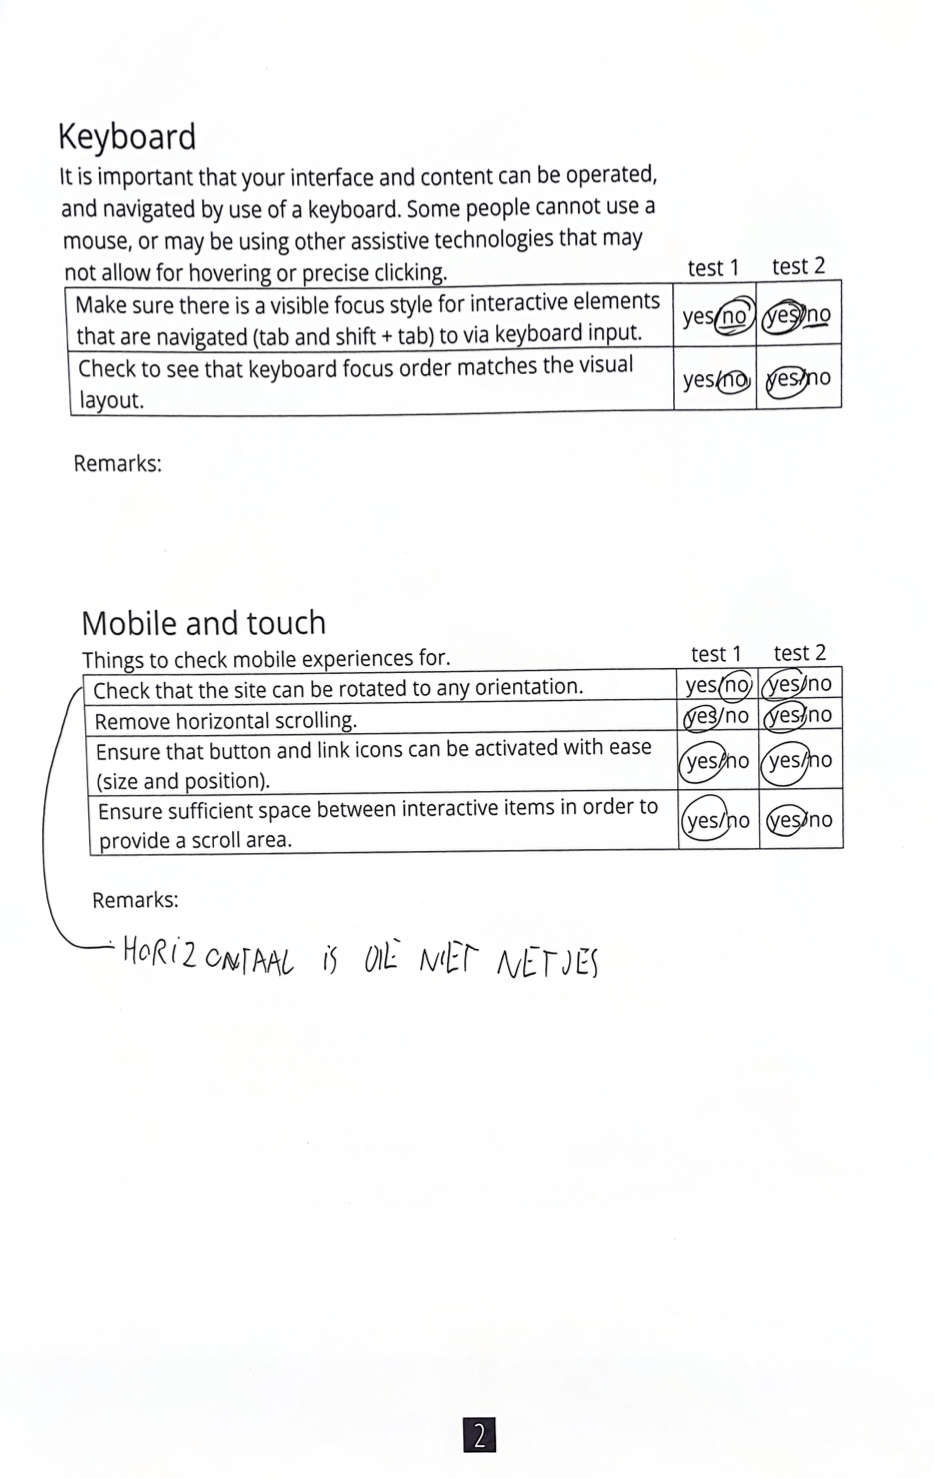 Keyboard
It is important that your interface and content can be operated,
and navigated by use of a keyboard. Some people cannot use a
mouse, or may be using other assistive technologies that may
not allow for hovering or precise clicking. test 1 test 2
Make sure there is a visible focus style for interactive elements
that are navigated (tab and shift + tab) to via keyboard input. yes/no yes/no
Check to see that keyboard focus order matches the visual
layout. yes/no yes/no
Remarks:
Mobile and touch
Things to check mobile experiences for. test 1 test 2
Check that the site can be rotated to any orientation. yes/no yes/no
Remove horizontal scrolling. yes/no yes/no
Ensure that button and link icons can be activated with ease
(size and position). yes/no yes/no
Ensure sufficient space between interactive items in order to
provide a scroll area. yes/no yes/no
Remarks:
HORIZONTAAL is NIET NETJES
2